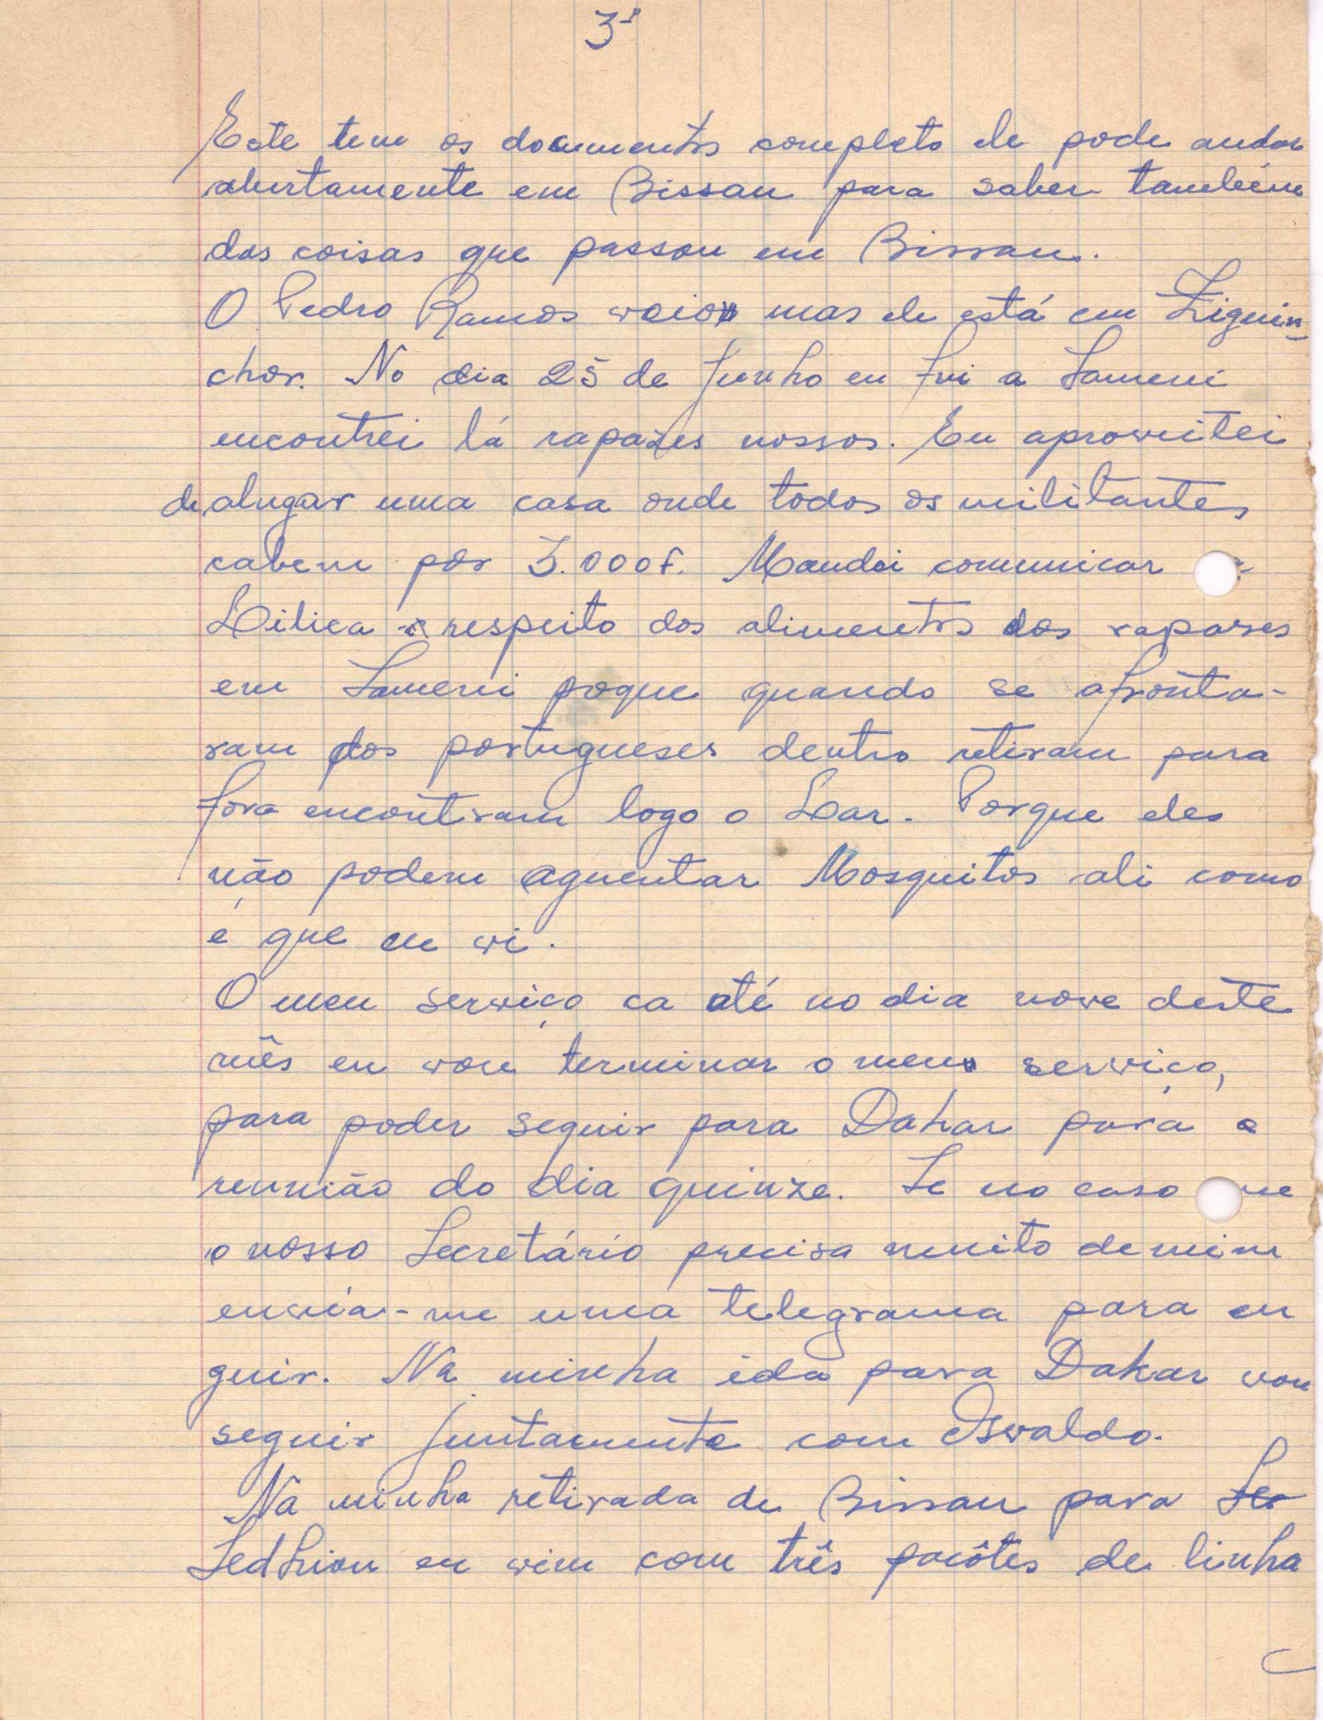 3º
Este tem os documentos completo ele pode andar
abertamente em Bissau para saber também
das coisas que passou em Bissau.
O Pedro Ramos veio mas ele está em Ziguin-
chor. No dia 25 de Junho eu fui a Samene
encontrei lá rapazes nossos. Eu aproveitei
de alugar uma casa onde todos os militantes
cabem por 3.000f. Mandei comunicar
Lilica a respeito dos alimentos dos rapazes
em Sameni poque quando se afronta-
ram dos portugueses dentro retiram para
fora encontram logo o Lar. Porque eles
não podem aguentar Mosquitos ali como
é que eu vi.
O meu serviço ca até no dia nove deste
mês eu vou terminar o meu serviço,
para poder seguir para Dakar para a
reunião do dia quinze. Se no caso
o nosso Secretário precisa muito de mim
envia-me uma telegrama para eu
guir. Na minha ida para Dakar vou
seguir juntamente com Osvaldo.
Na minha retirada de Bissau para
Sedhiou eu vim com três pacôtes de linha